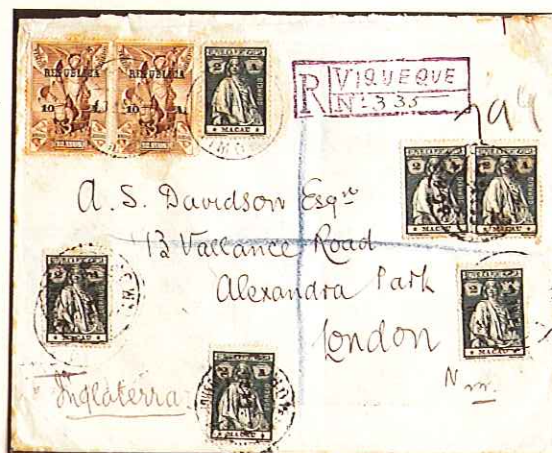 REPUBLICA REPUBLICA
10 10
2 A
MACAU
R VIQUEQUE
Nº 335
2 A 2 A
MACAU MACAU
A. S. Davidson Esqre
13 Vallance Road
Alexandra Park
London
N
2 A
MACAU
2 A
MACAU
2 A
MACAU
Inglaterra